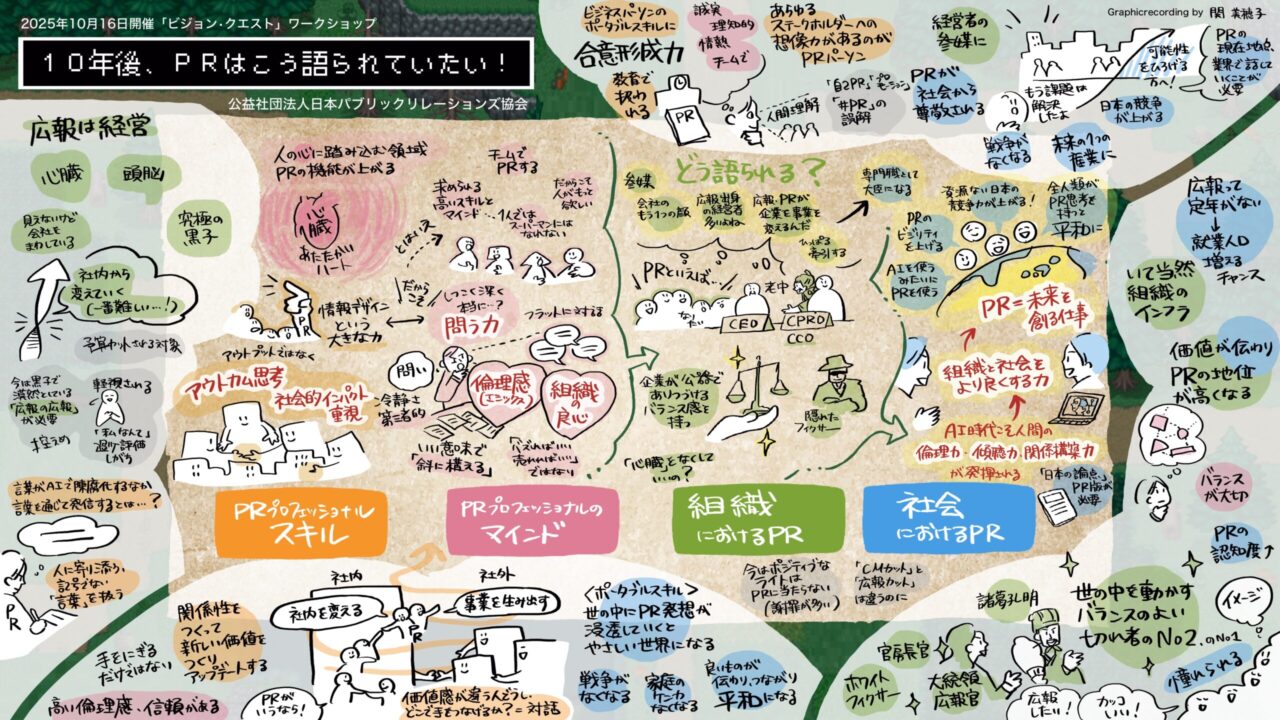 2025年10月16日開催「ビジョン・クエスト」ワークショップ
10年後、PRはこう語られていたい！
公益社団法人日本パブリックリレーションズ協会
Graphicrecording by 関 美穂子
ビジネスパーソンの
ポータブルスキルに
合意形成力
誠実
理知的
情熱
チームで
あらゆる
ステークホルダーへの
想像力があるのが
PRパーソン
教育で
扱われる
PR
人間理解
「自己PR」
「#PR」の
誤解
PRが
社会から
尊敬される
経営者の
参謀に
可能性
をひろげる
方へ！
もう課題は
解決
したよ
日本の競争
が上がる
PRの
現在地点、
業界で話して
いくことが
必要
戦争が
なくなる
未来の1つの
産業に
広報は経営
心臓
頭脳
見えないけど
会社を
まわしている
究極の
黒子
社内から
変えていく
(一番難しい…!)
予算カットされる対象
今は黒子で
漠然としている
「広報の広報」
が必要
控えめ
軽視される
「私なんて」
過少評価
しがち
言葉がAIで陳腐化するなか
言葉を通じて発信するとは…?
人に寄り添う、
記号でない
「言葉」を扱う
PR
人の心に踏み込む領域
PRの機能が上がる
心臓
あたたかい
ハート
チームで
PRする
求められる
高いスキルと
マインド…
1人では
スーパーマンには
なれない
だからこそ
人がもっと
欲しい
とはいえ
だから
こそ
PR
情報デザイン
という
大きな力
しつこく深く
本当に…?
問う力
フラットに対話
アウトプットではなく
アウトカム思考
社会的インパクト
重視
問い
冷静さ
第三者的
倫理感
(エシックス)
組織
の
良心
いい意味で
「斜に構える」
「バズればいい
売れればいい」
ではない
どう語られる？
参謀
会社の
もう1つの顔
広報出身
の経営者
多いよね
広報、PRが
企業を事業を
変えるんだ
ひっぱる
牽引する
PRといえば…
なり
たい
老中
CEO
CPRO
CCO
企業が公器で
ありつづける
バランス感を
持つ
隠れた
フィクサー
「心臓」をなくして
いいの？
専門職として
大臣になる
資源ない日本の
競争力が上がる!
全人類が
PR思考を
持つと
平和に
PRの
ビジリティ
を上げる
AIを使う
みたいに
PRを使う
PR=未来を
創る仕事
組織と社会を
より良くする力
AI時代こそ人間の
倫理力・傾聴力・関係構築力
が発揮される
「日本の論点」
PR版が
必要
広報って
定年がない
就業人口
増える
チャンス
いて当然
組織の
インフラ
価値が伝わり
PRの地位
が高くなる
バランス
が大切
PRの
認知度↑
PRプロフェッショナル
スキル
PRプロフェッショナルの
マインド
組織
におけるPR
社会
におけるPR
手をにぎる
だけではない
関係性を
つくって
新しい価値を
つくり、
アップデートする
高い倫理感、信頼がある
PRが
いうなら!
社内
社外
社内を変える
事業を生み出す
PR
価値感が違うんどうし
どこで手をつなげるか?=対話
〈ポータブルスキル〉
世の中にPR発想が
浸透していくと
やさしい世界になる
戦争が
なくなる
家庭の
ケンカ
なくなる
良いものが
伝わり、つながり
平和になる
今はポジティブな
ライトは
PRに当たらない
(謝罪が多い)
「CMカット」と
「広報カット」
は違うのに
諸葛孔明
官房長官
ホワイト
フィクサー
大統領
広報官
世の中を動かす
バランスのよい
切れ者のNo2.のNo1
イメージ
憧れられる
広報
したい!
カッコ
いい!